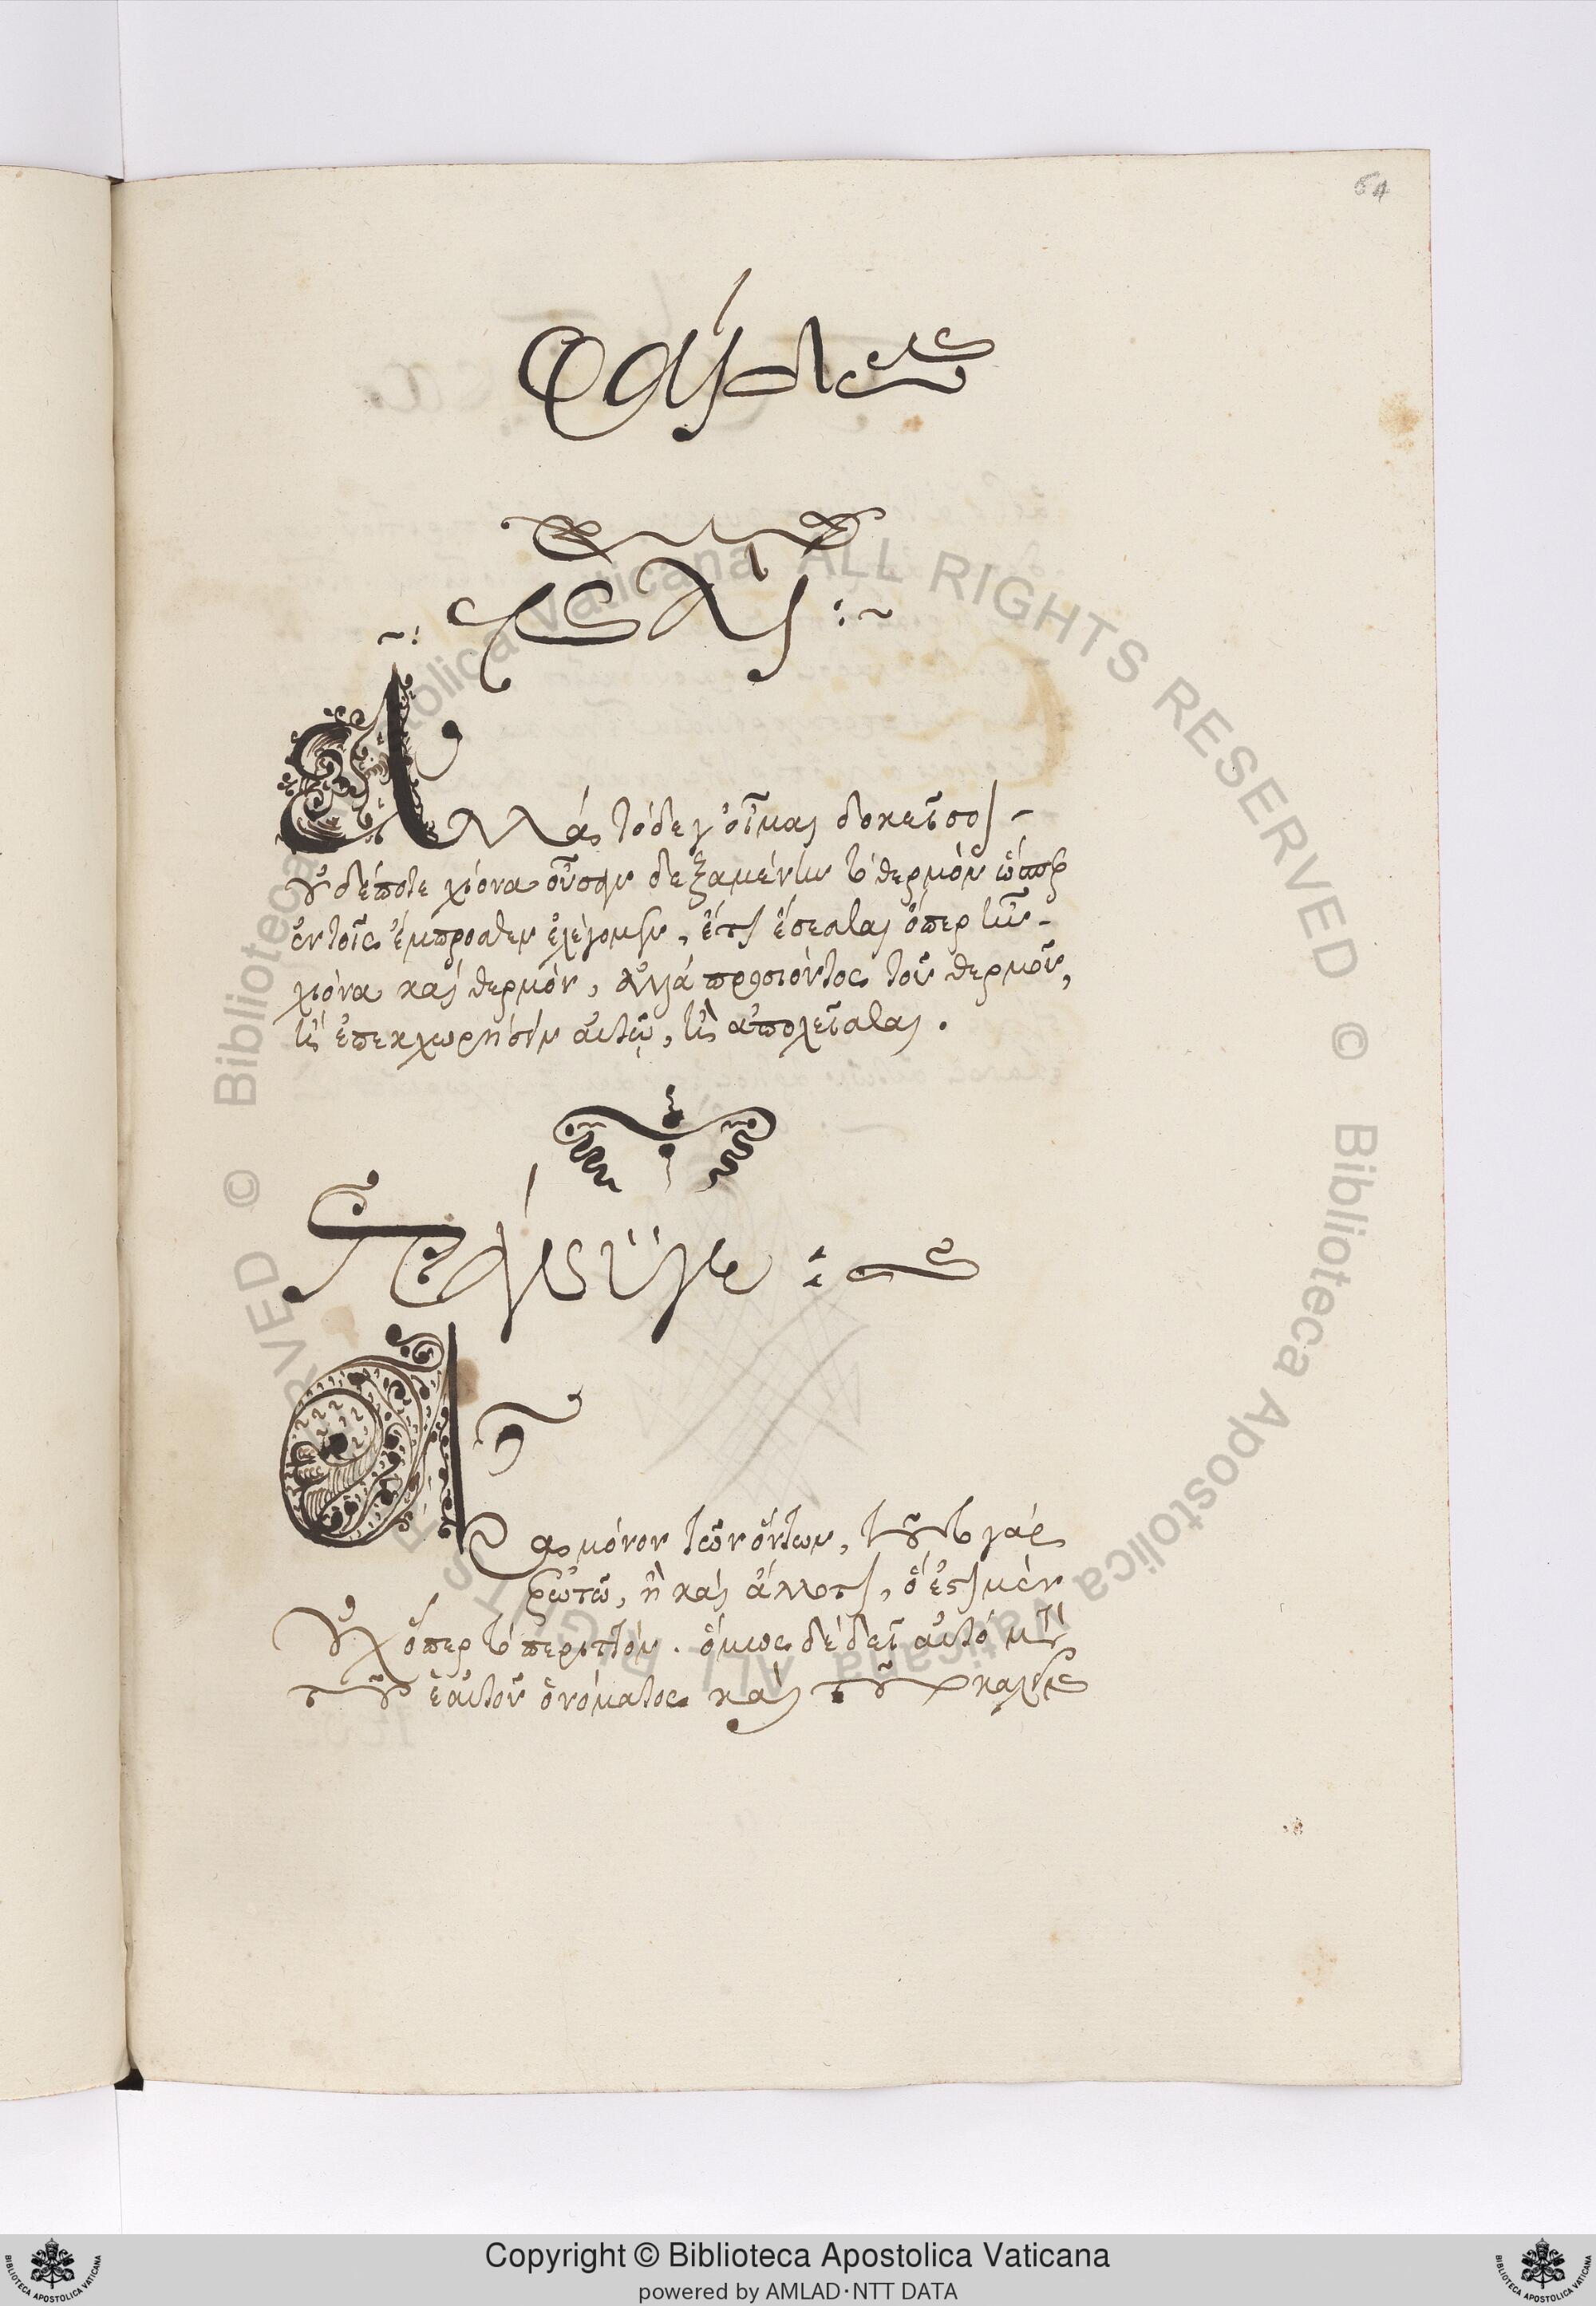 Ἀλλὰ τόδε γ' οἶμαι δοκεῖ σοι
οὐδέποτε χιόνα οὖσαν δεξαμένην τὸ θερμὸν ὥσπερ
ἐν τοῖς ἔμπροσθεν ἐλέγομεν, ἔτι ἔσεσθαι ὅπερ ἦν
χιόνα καὶ θερμόν, ἀλλὰ προσιόντος τοῦ θερμοῦ,
ἢ ἐπεκχωρήσειν αὐτῷ, ἢ ἀπολεῖσθαι.
Πάνυ γε :
Ἆρα μόνον τῶν ὄντων, τοῦτο γὰρ
ἐρωτῶ, ἢ καὶ ἄλλο τι, ὃ ἔστι μὲν
οὐχ ὅπερ τὸ περιττόν. ὅμως δὲ δεῖ αὐτὸ μετὰ
τοῦ ἑαυτοῦ ὀνόματος καὶ τοῦτο καλεῖν
64
Copyright © Biblioteca Apostolica Vaticana
powered by AMLAD·NTT DATA